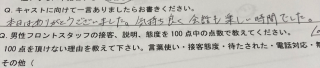 Q. キャストに向けて一言ありましたらお書きください。
本日はありがとうございました。気持ち良く会話も楽しい時間でした。
Q. 男性フロントスタッフの接客、説明、態度を100点中の点数で教えてください。
100点を頂けない理由を教えて下さい。言葉使い・接客態度・待たされた・電話対応・
その他（